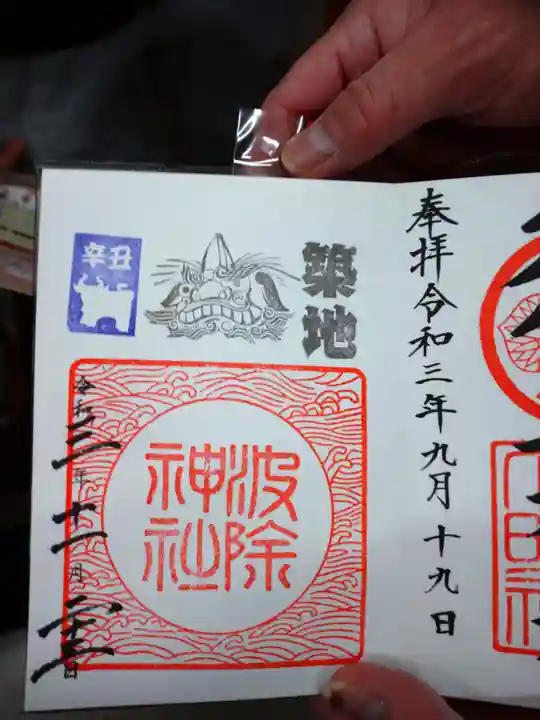 奉拝令和三年九月十九日
築地
辛丑
波除
神社
令和三年十一月二十三日